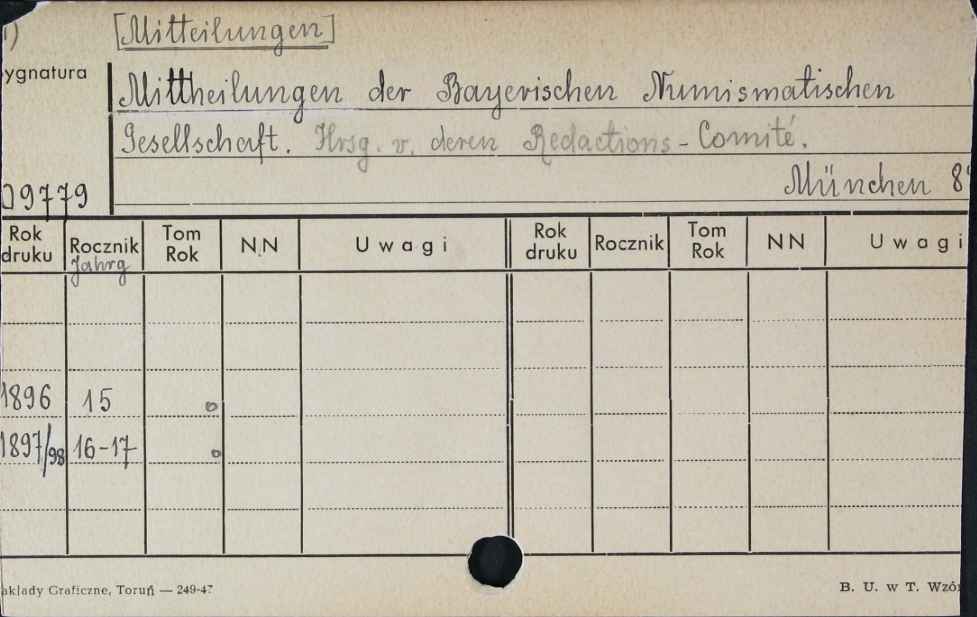 [Mitteilungen]
ygnatura
Mittheilungen der Bayerischen Numismatischen
Gesellschaft. Hrsg. v. deren Redactions-Comité.
09779
München 8°
Rok druku Rocznik Jahrg Tom Rok NN Uwagi Rok druku Rocznik Tom Rok NN Uwagi
1896 15
1897/98 16-17
akłady Graficzne, Toruń — 249-47
B. U. w T. Wzó